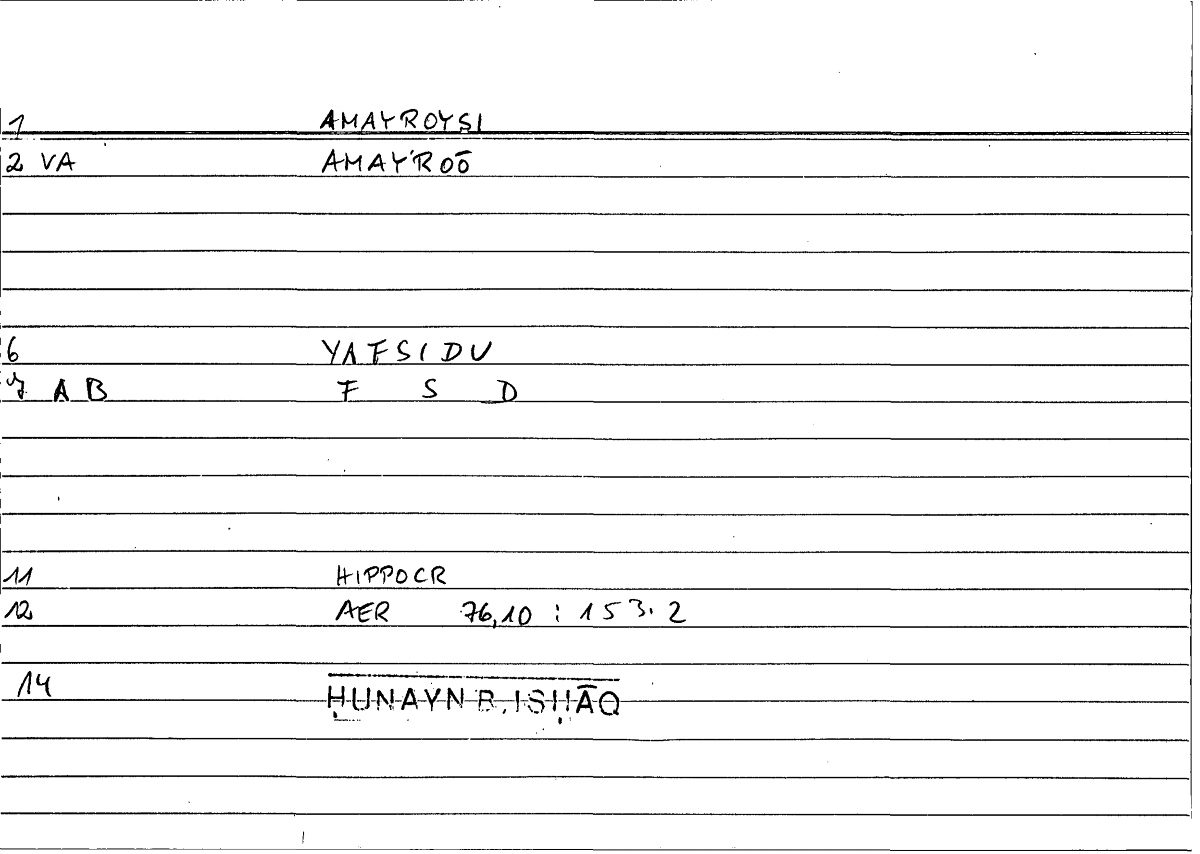 1 AMAYROYSI
2 VA AMAY'ROŌ
6 YAFSIDU
7 AB F S D
11 HIPPOCR
12 AER 76,10 : 153.2
14 ḤUNAYN B. ISḤĀQ